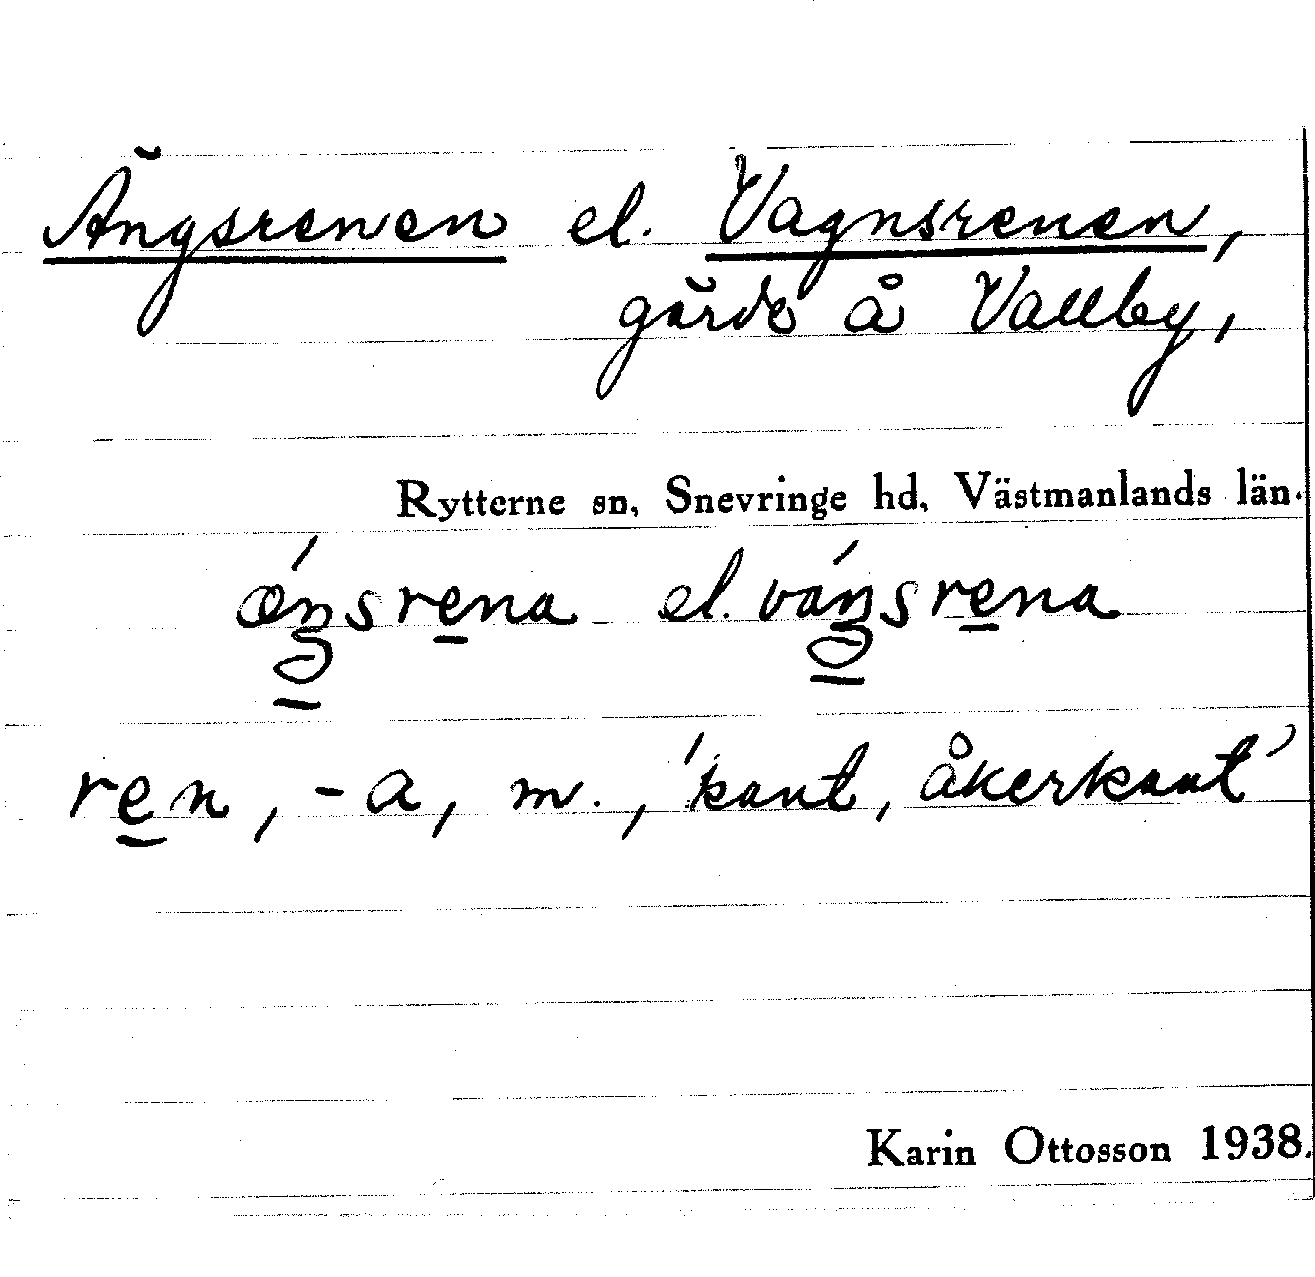 Ängsrenen el. Vagnsrenen,
gärde å Vallby,
Rytterne sn, Snevringe hd, Västmanlands län.
ǽŋsrena el. váŋsrena
ren, -a, m., 'kant, åkerkant'
Karin Ottosson 1938.